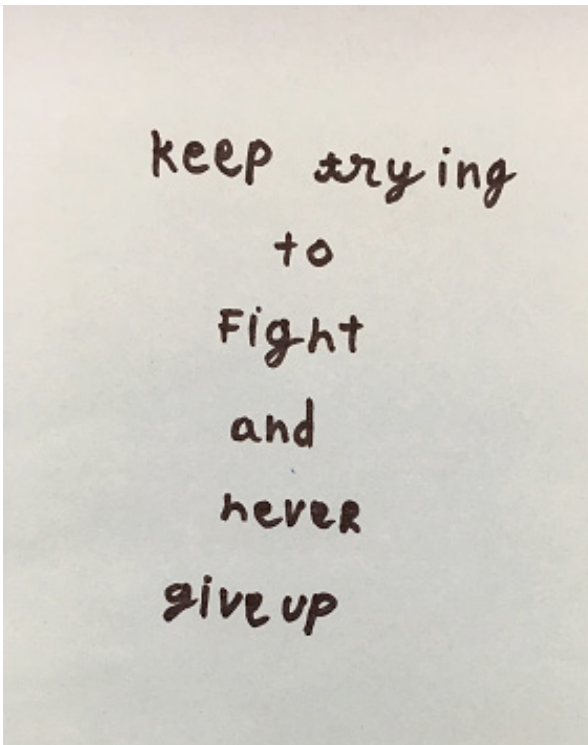 keep trying
to
Fight
and
never
give up